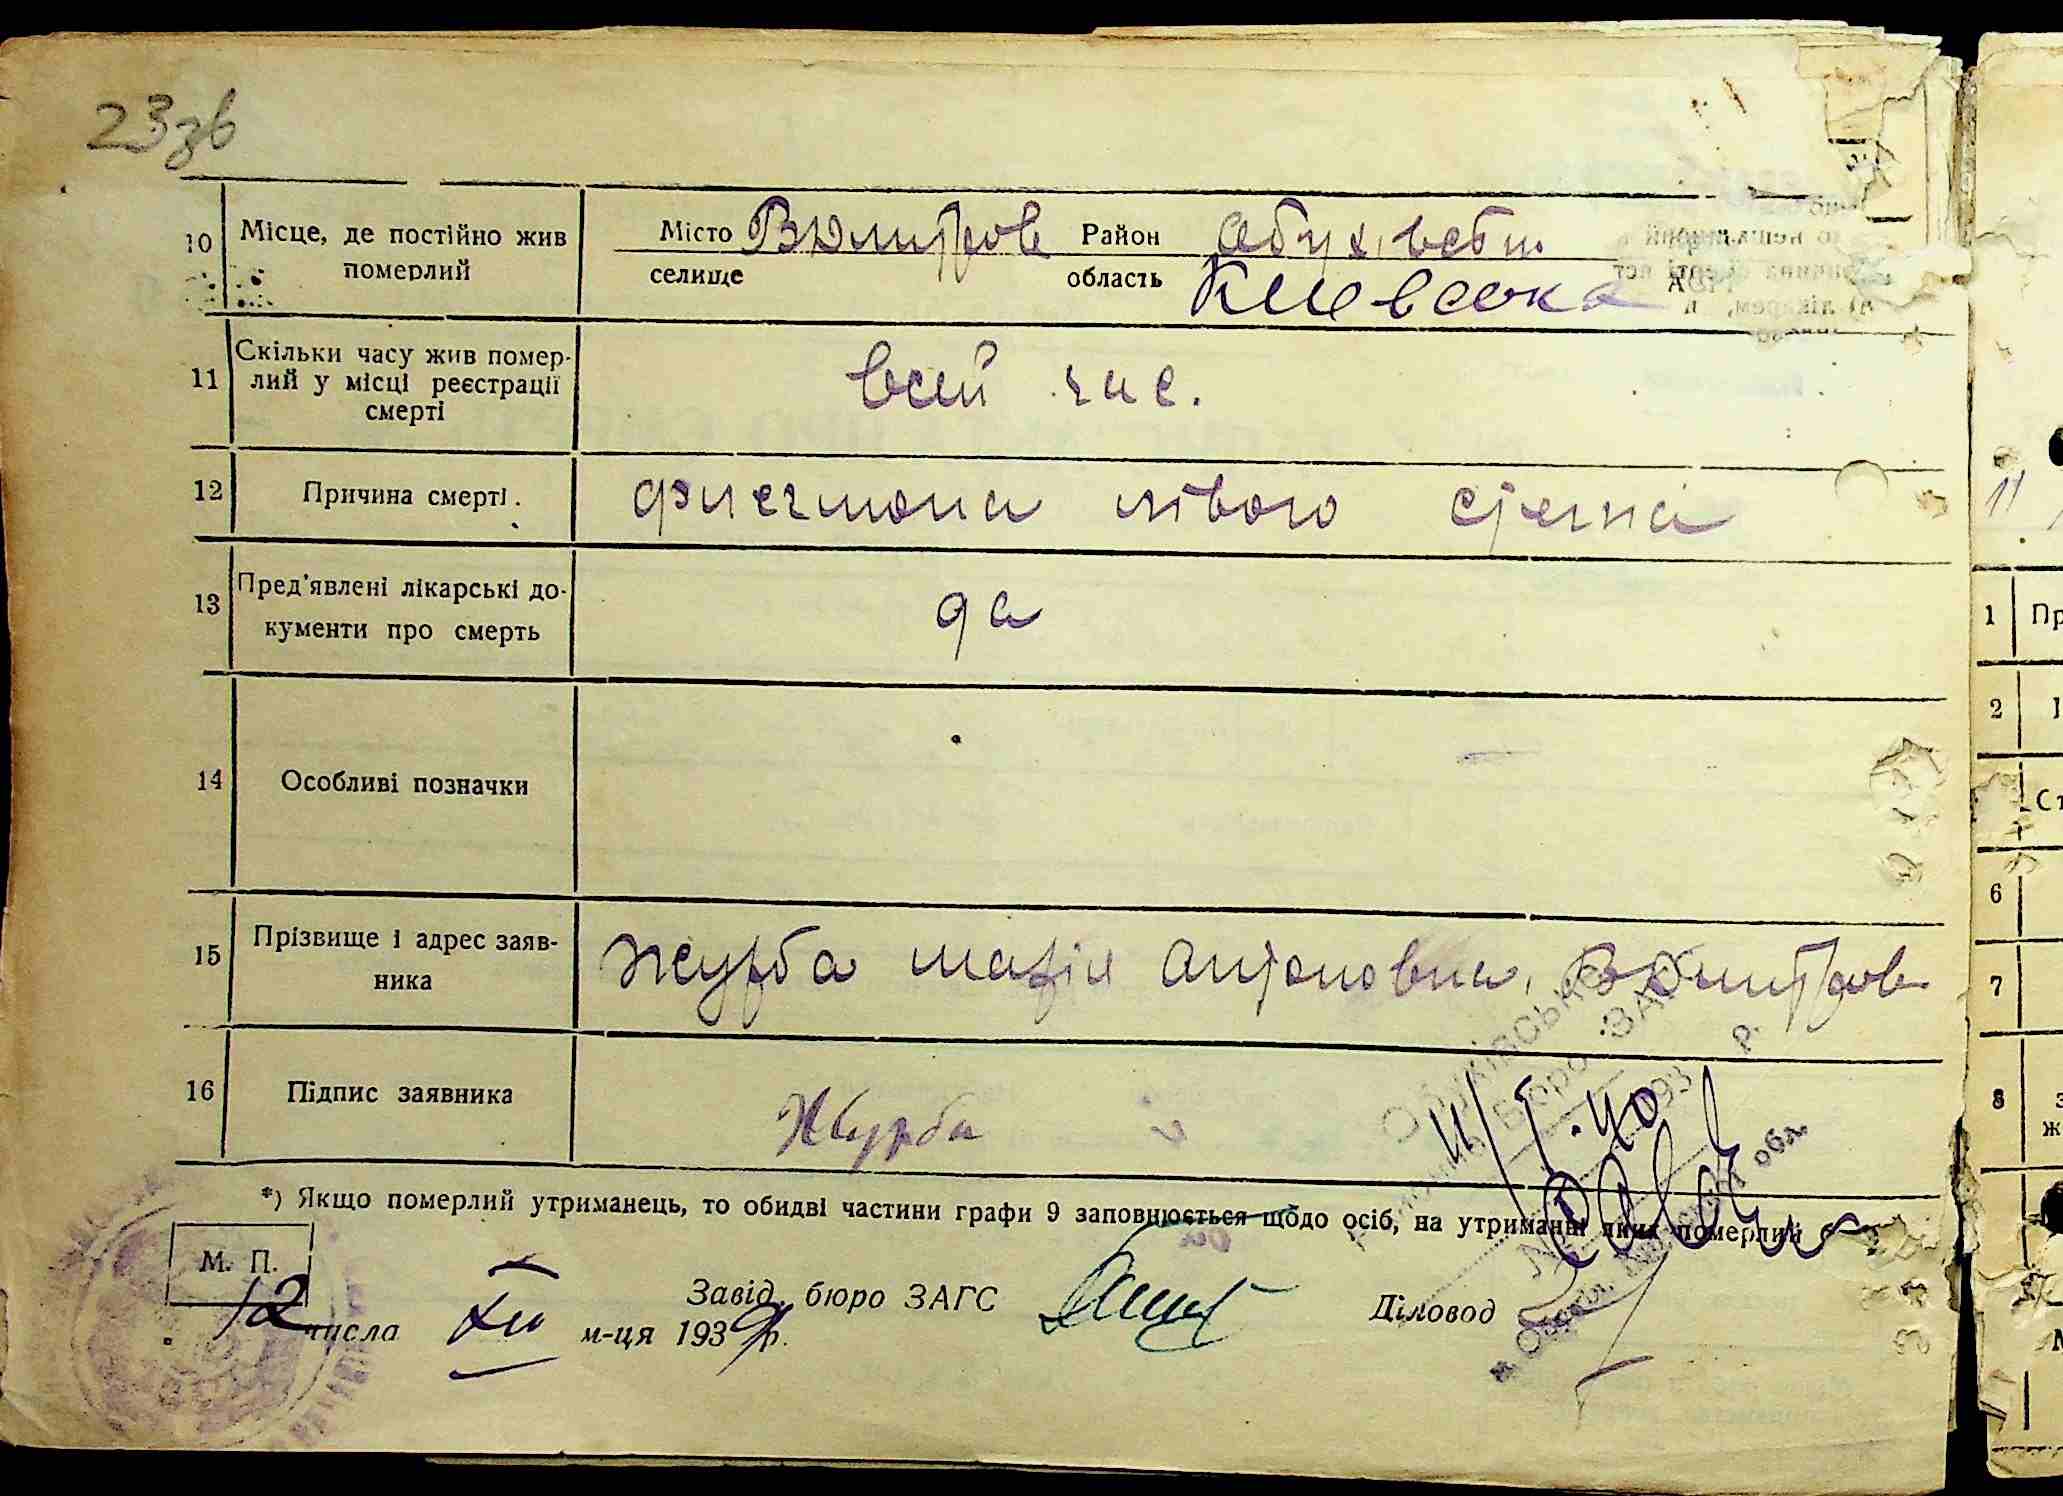 23зв
10 Місце, де постійно жив померлий
Місто В Дмитров Район Обухівськ.
селище область Київська
11 Скільки часу жив помер-
лий у місці реєстрації
смерті
всей час.
12 Причина смерті. флегмона лівого стегна
13 Пред'явлені лікарські до-
кументи про смерть
да
14 Особливі позначки
15 Прізвище і адрес заяв-
ника
Журба Марія Антоновна, В Дмитров
16 Підпис заявника Журба
Обухівське
Бюро ЗАГС
193 р.
11/I.40
обл.
*) Якщо померлий утриманець, то обидві частини графи 9 заповнюється щодо осіб, на утриманні яких померлий
М. П.
Завід. бюро ЗАГС
Діловод
12 числа XII м-ця 1939 р.
11
1 Пр
2
Ст
6
7
8
ж